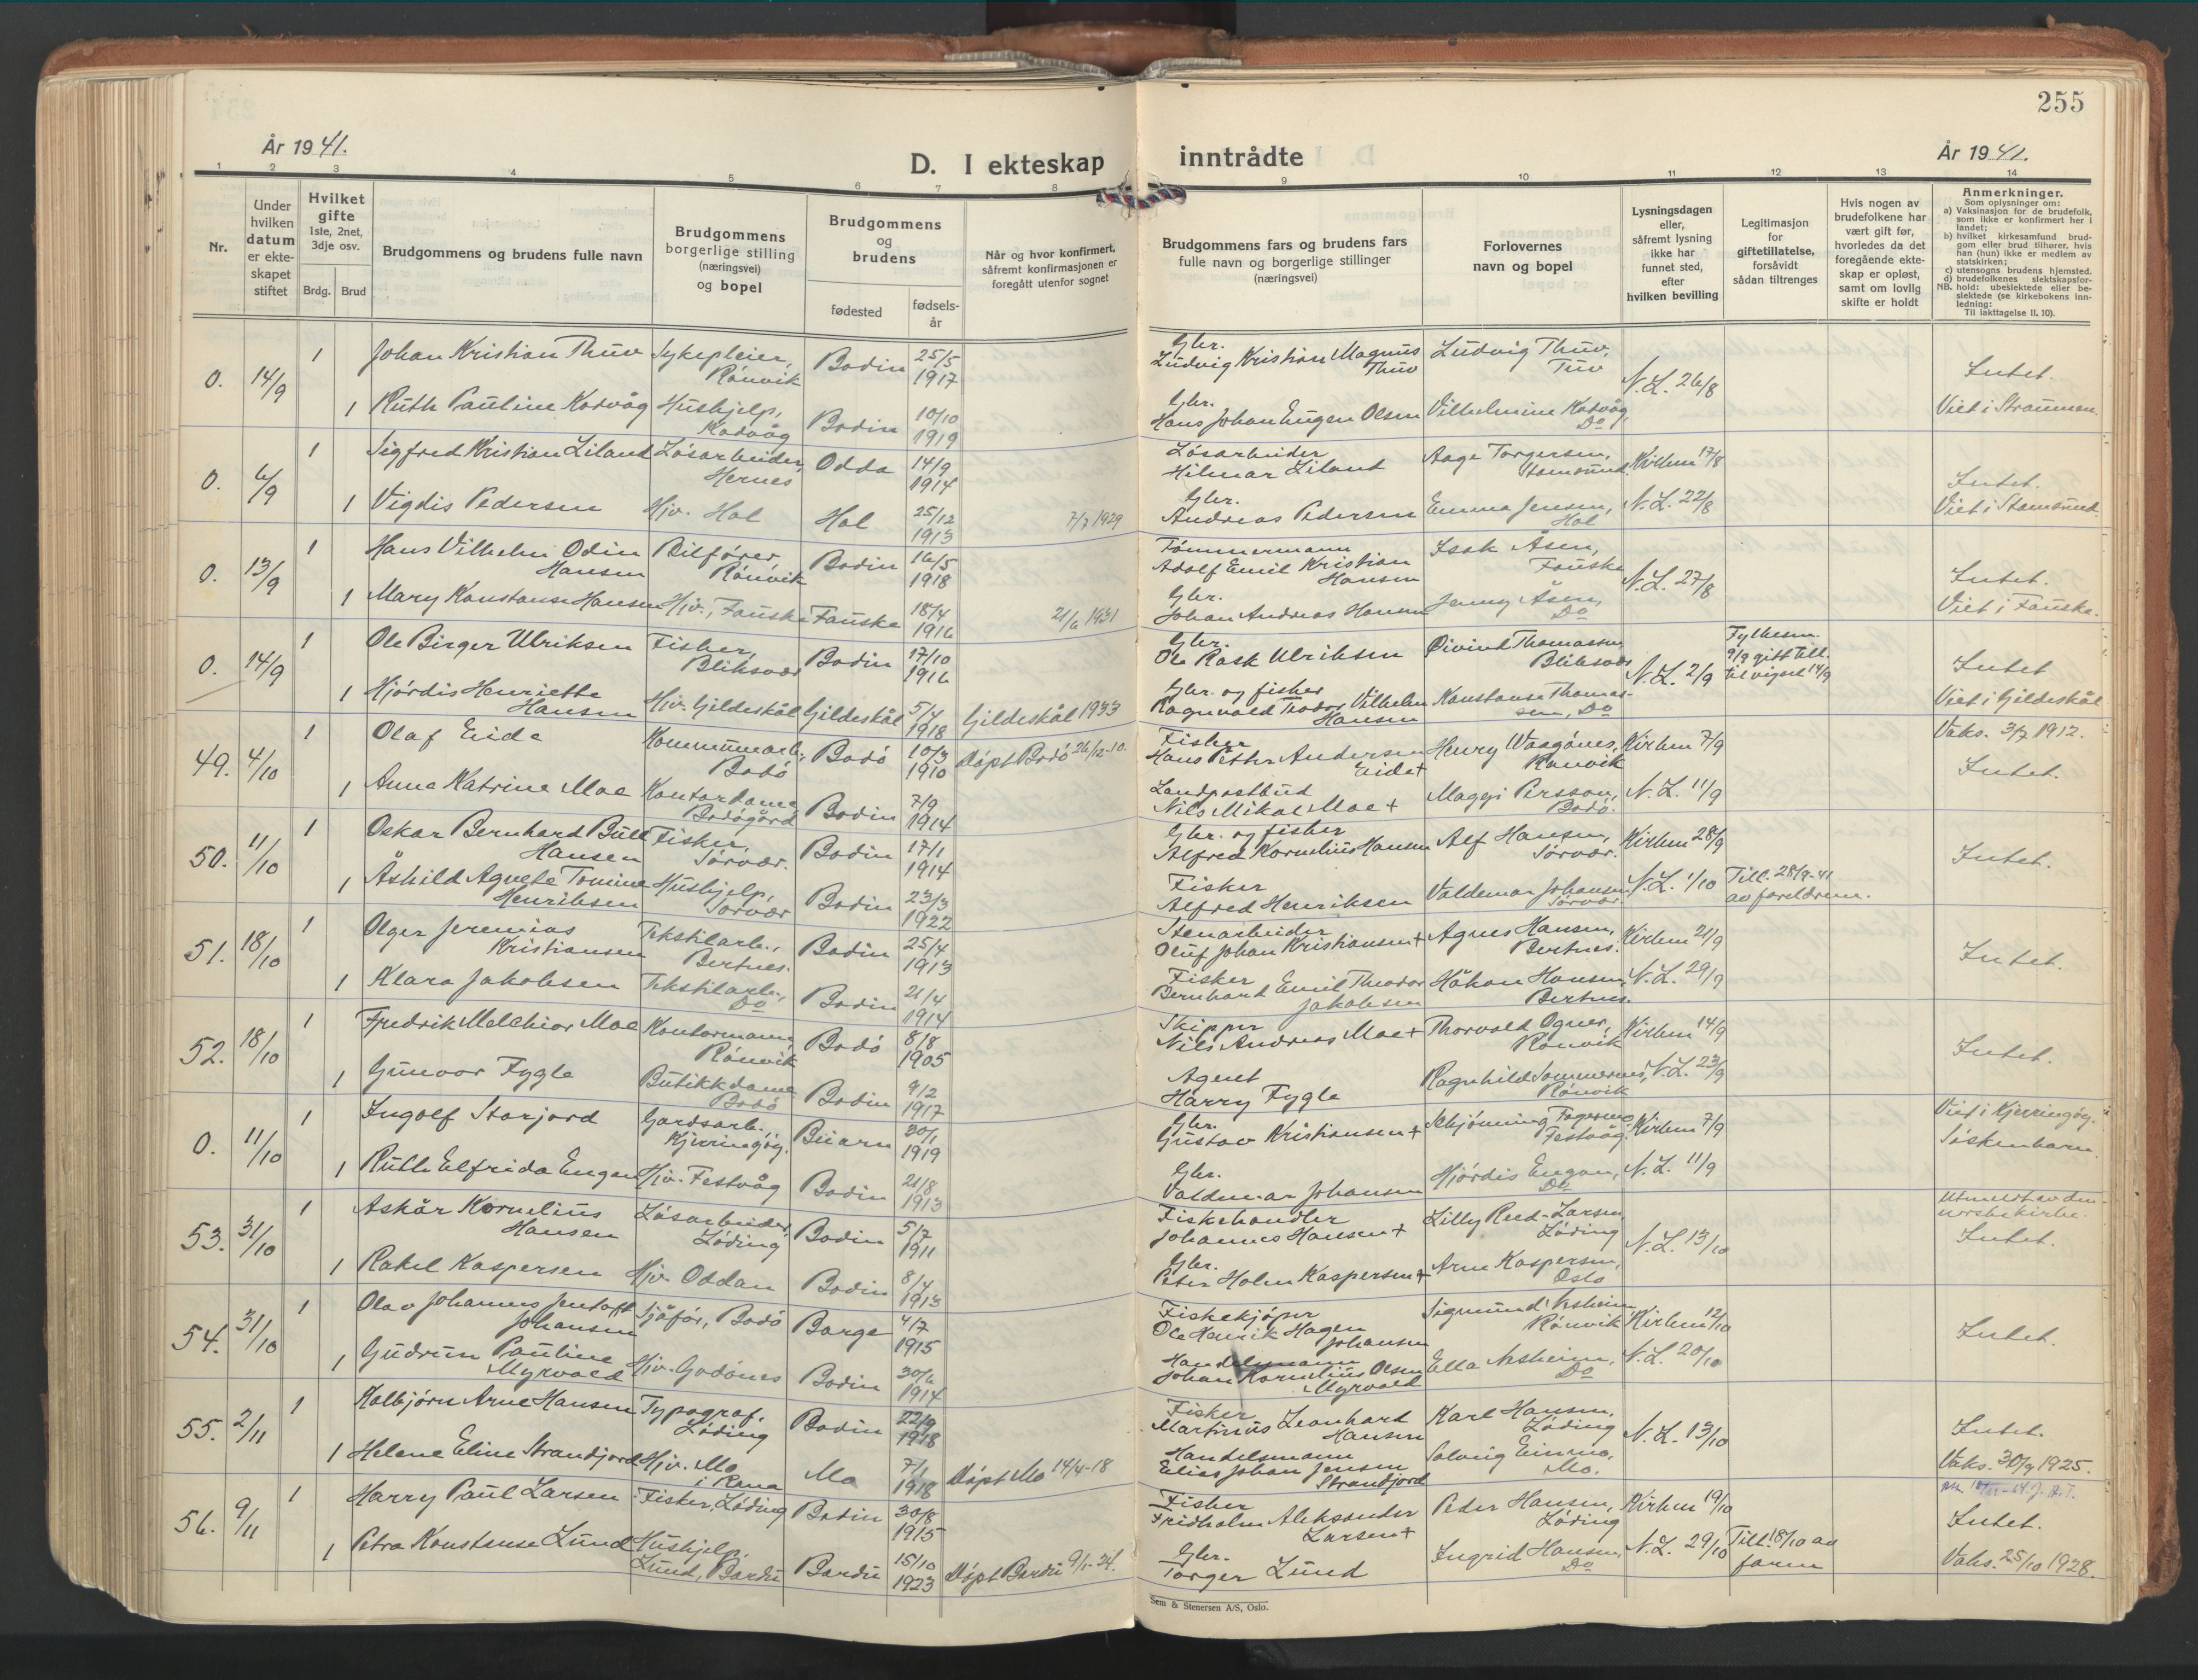 255
År 1941.
D. I ekteskap inntrådte
År 1941.
1 2 3 4 5 6 7 8 9 10 11 12 13 14
Nr.
Under hvilken datum er ekteskapet stiftet
Hvilket gifte 1ste, 2net, 3dje osv.
Brdg. Brud
Brudgommens og brudens fulle navn
Brudgommens borgerlige stilling (næringsvei) og bopel
Brudgommens og brudens
fødested
fødselsår
Når og hvor konfirmert, såfremt konfirmasjonen er foregått utenfor sognet
Brudgommens fars og brudens fars fulle navn og borgerlige stillinger (næringsvei)
Forlovernes navn og bopel
Lysningsdagen eller, såfremt lysning ikke har funnet sted, efter hvilken bevilling
Legitimasjon for giftetillatelse, forsåvidt sådan tiltrenges
Hvis nogen av brudefolkene har vært gift før, hvorledes da det foregående ekteskap er opløst, samt om lovlig skifte er holdt
Anmerkninger.
Som oplysninger om:
a) Vaksinasjon for de brudefolk, som ikke er konfirmert her i landet;
b) hvilket kirkesamfund brudgom eller brud tilhører, hvis han (hun) ikke er medlem av statskirken;
c) utensogns brudens hjemsted.
d) brudefolkenes slektskapsforhold: ubeslektede eller beslektede (se kirkebokens innledning:
NB. Til iakttagelse II. 10).
0. 14/9 1 Johan Kristian Thuv Sykepleier, Rønvik Bodin 25/5 1917 Gbr. Ludvig Kristian Magnus Thuv Ludvig Thuv, Tuv N.L. 26/8 Intet.
1 Ruth Pauline Kodvåg Hushjelp, Kodvåg Bodin 10/10 1919 Gbr. Hans Johan Eugen Olsen Vilhelmine Kodvåg, Do Viet i Straumen.
0. 6/9 1 Sigfred Kristian Liland Løsarbeider, Hernes Odda 14/9 1914 Løsarbeider Hilmar Liland Aage Torgersen, Stamsund. Kirken 17/8 Intet.
1 Vigdis Pedersen Hjv. Hol Hol 25/12 1913 7/7 1929 Gbr. Andreas Pedersen Emma Jensen, Hol N.L. 22/8 Viet i Stamsund.
0. 13/9 1 Hans Vilhelm Odin Hansen Bilfører, Rønvik Bodin 16/5 1918 Tømmermann Adolf Emil Kristian Hansen Isak Åsen, Fauske N.L. 27/8 Intet.
1 Mary Konstanse Hansen Hjv., Fauske Fauske 18/4 1916 21/6 1931 Gbr. Johan Andreas Hansen Jenny Åsen, Do Viet i Fauske.
0. 14/9 1 Ole Birger Ulriksen Fisker, Bliksvær Bodin 17/10 1916 Gbr. Ole Rask Ulriksen Øivind Thomassen, Bliksvær N.L. 2/9 Fylkesm. 9/9 gitt till. til vigsel 14/9 Intet
1 Hjørdis Henriette Hansen Hjv. Gildeskål Gildeskål 5/4 1918 Gildeskål 1933 Gbr. og fisker Ragnvald Teodor Vilhelm Hansen Konstanse Thomassen, Do Viet i Gildeskål
49. 4/10 1 Olaf Eide Kommunearb., Bodø Bodø 10/3 1910 Døpt Bodø 26/12-10. Fisker Hans Petter Andersen Eide+ Henry Waagønes, Rønvik Kirken 7/9 Vaks. 3/7 1912. Intet.
1 Anna Katrine Moe Kontordame, Bodøgård Bodin 7/9 1914 Landpostbud Nils Mikal Moe+ Maggi Persson, Bodø. N.L. 11/9
50. 11/10 1 Oskar Bernhard Bull Hansen Fisker, Sørvær. Bodin 17/1 1914 Gbr. og fisker Alfred Kornelius Hansen Alf Hansen, Sørvær. Kirken 28/9 Intet.
1 Åshild Agnete Tomine Henriksen Hushjelp, Sørvær Bodin 23/3 1922 Fisker Alfred Henriksen Valdemar Johansen, Sørvær N.L. 1/10 Till. 28/9-41 av foreldrene.
51. 18/10 1 Olger Jeremias Kristiansen Tekstilarb., Bertnes. Bodin 25/4 1913 Stenarbeider Oluf Johan Kristiansen+ Agnes Hansen, Bertnes. Kirken 21/9 Intet.
1 Klara Jakobsen Tekstilarb., Do Bodin 21/4 1914 Fisker Bernhard Emil Theodor Jakobsen Håkon Hansen, Bertnes. N.L. 29/9
52. 18/10 1 Fredrik Melchior Moe Kontormann, Rønvik Bodø 8/8 1905 Skipper Nils Andreas Moe+ Thorvald Ogner, Rønvik Kirken 14/9 Intet.
1 Gunvor Fygle Butikkdame Bodø Bodin 9/2 1917 Agent Harry Fygle Ragnhild Sommernes, Rønvik N.L. 23/9
0. 11/10 1 Ingolf Storjord Gardsarb., Kjerringøy. Beiarn 30/1 1919 Gbr. Gustav Kristiansen+ Schjønning Fagernes, Festvåg. Kirken 7/9 Viet i Kjerringøy. Søskenbarn.
1 Ruth Elfrida Engan Hjv. Festvåg Bodin 21/8 1913 Gbr. Valdemar Johansen Hjørdis Engan, Do N.L. 11/9
53. 31/10 1 Askår Kornelius Hansen Løsarbeider, Løding Bodin 5/7 1911 Fiskehandler Johannes Hansen+ Lilly Reed-Larsen Løding N.L. 13/10 Utmeldt av den norske kirke. Intet.
1 Rakel Kaspersen Hjv. Oddan Bodin 8/4 1913 Gbr. Peter Holm Kaspersen+ Arne Kaspersen, Oslo
54. 31/10 1 Olav Johannes Jentoft Johansen Sjåfør, Bodø Borge 4/7 1915 Fiskekjøper Ole Henrik Hagen Johansen Sigmund Aesheim, Rønvik Kirken 12/10 Intet.
1 Gudrun Pauline Myrvold Hjv. Godønes Bodin 30/6 1914 Handelsmann Johan Kornelius Olsen Myrvold Ella Aesheim, Do N.L. 20/10
55. 2/11 1 Kolbjørn Arne Hansen Typograf, Løding Bodin 22/9 1918 Fisker Martinus Leonhard Hansen Karl Hansen, Løding N.L. 13/10 Intet.
1 Helene Eline Strandjord Hjv. Mo i Rana Mo 7/1 1918 Døpt Mo 14/4-18 Handelsmann Elias Johan Jensen Strandjord Solveig Einmo, Mo. Vaks. 30/9 1925.
56. 9/11 1 Harry Paul Larsen Fisker, Løding Bodin 30/8 1915 Fisker Fridholm Aleksander Larsen+ Peder Hansen, Løding Kirken 19/10 Intet.
1 Petra Konstanse Lund Hushjelp, Lund, Bardu Bardu 15/10 1923 Døpt Bardu 9/1-24. Gbr. Torger Lund Ingrid Hansen, Do N.L. 29/10 Till. 18/10 av faren Vaks. 25/10 1928.
Sem & Stenersen A/S, Oslo.